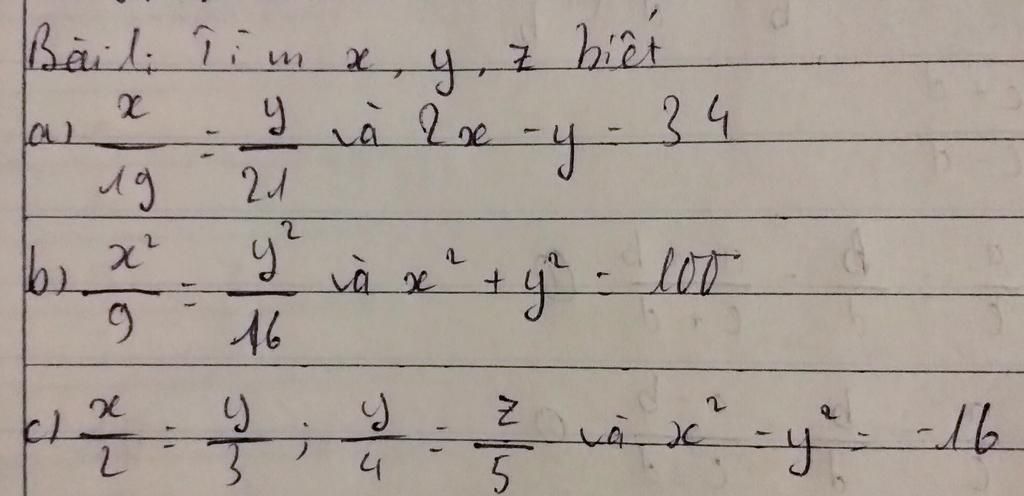 Bài 1: Tìm x, y, z biết
a) x/19 = y/21 và 2x - y = 34
b) x²/9 = y²/16 và x² + y² = 100
c) x/2 = y/3 ; y/4 = z/5 và x² - y² = -16